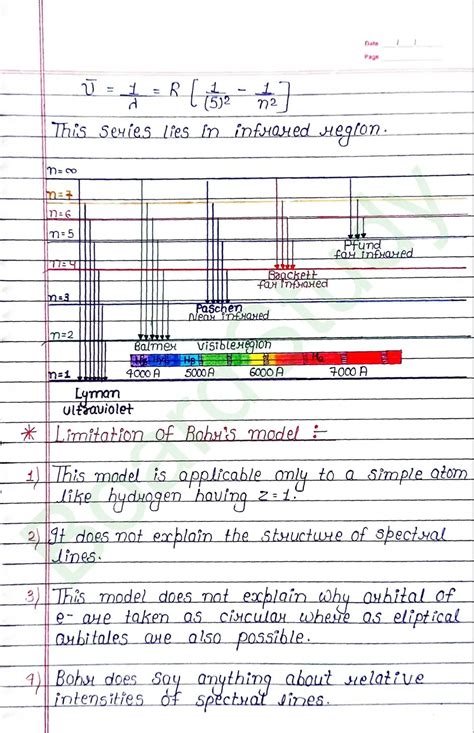 Date / /
Page
ν̄ = 1/λ = R [ 1/(5)² - 1/n² ]
This series lies in infrared region.
n=∞
n=7
n=6
n=5
Pfund
far infrared
n=4
Brackett
far infrared
n=3
Paschen
Near infrared
n=2
Balmer Visible region
n=1
4000 A 5000 A 6000 A 7000 A
Lyman
Ultraviolet
* Limitation of Bohr's model :-
1) This model is applicable only to a simple atom
like hydrogen having z=1.
2) It does not explain the structure of spectral
lines.
3) This model does not explain why orbital of
e- are taken as circular where as eliptical
orbitales are also possible.
4) Bohr does say anything about relative
intensities of spectral lines.
Board Study